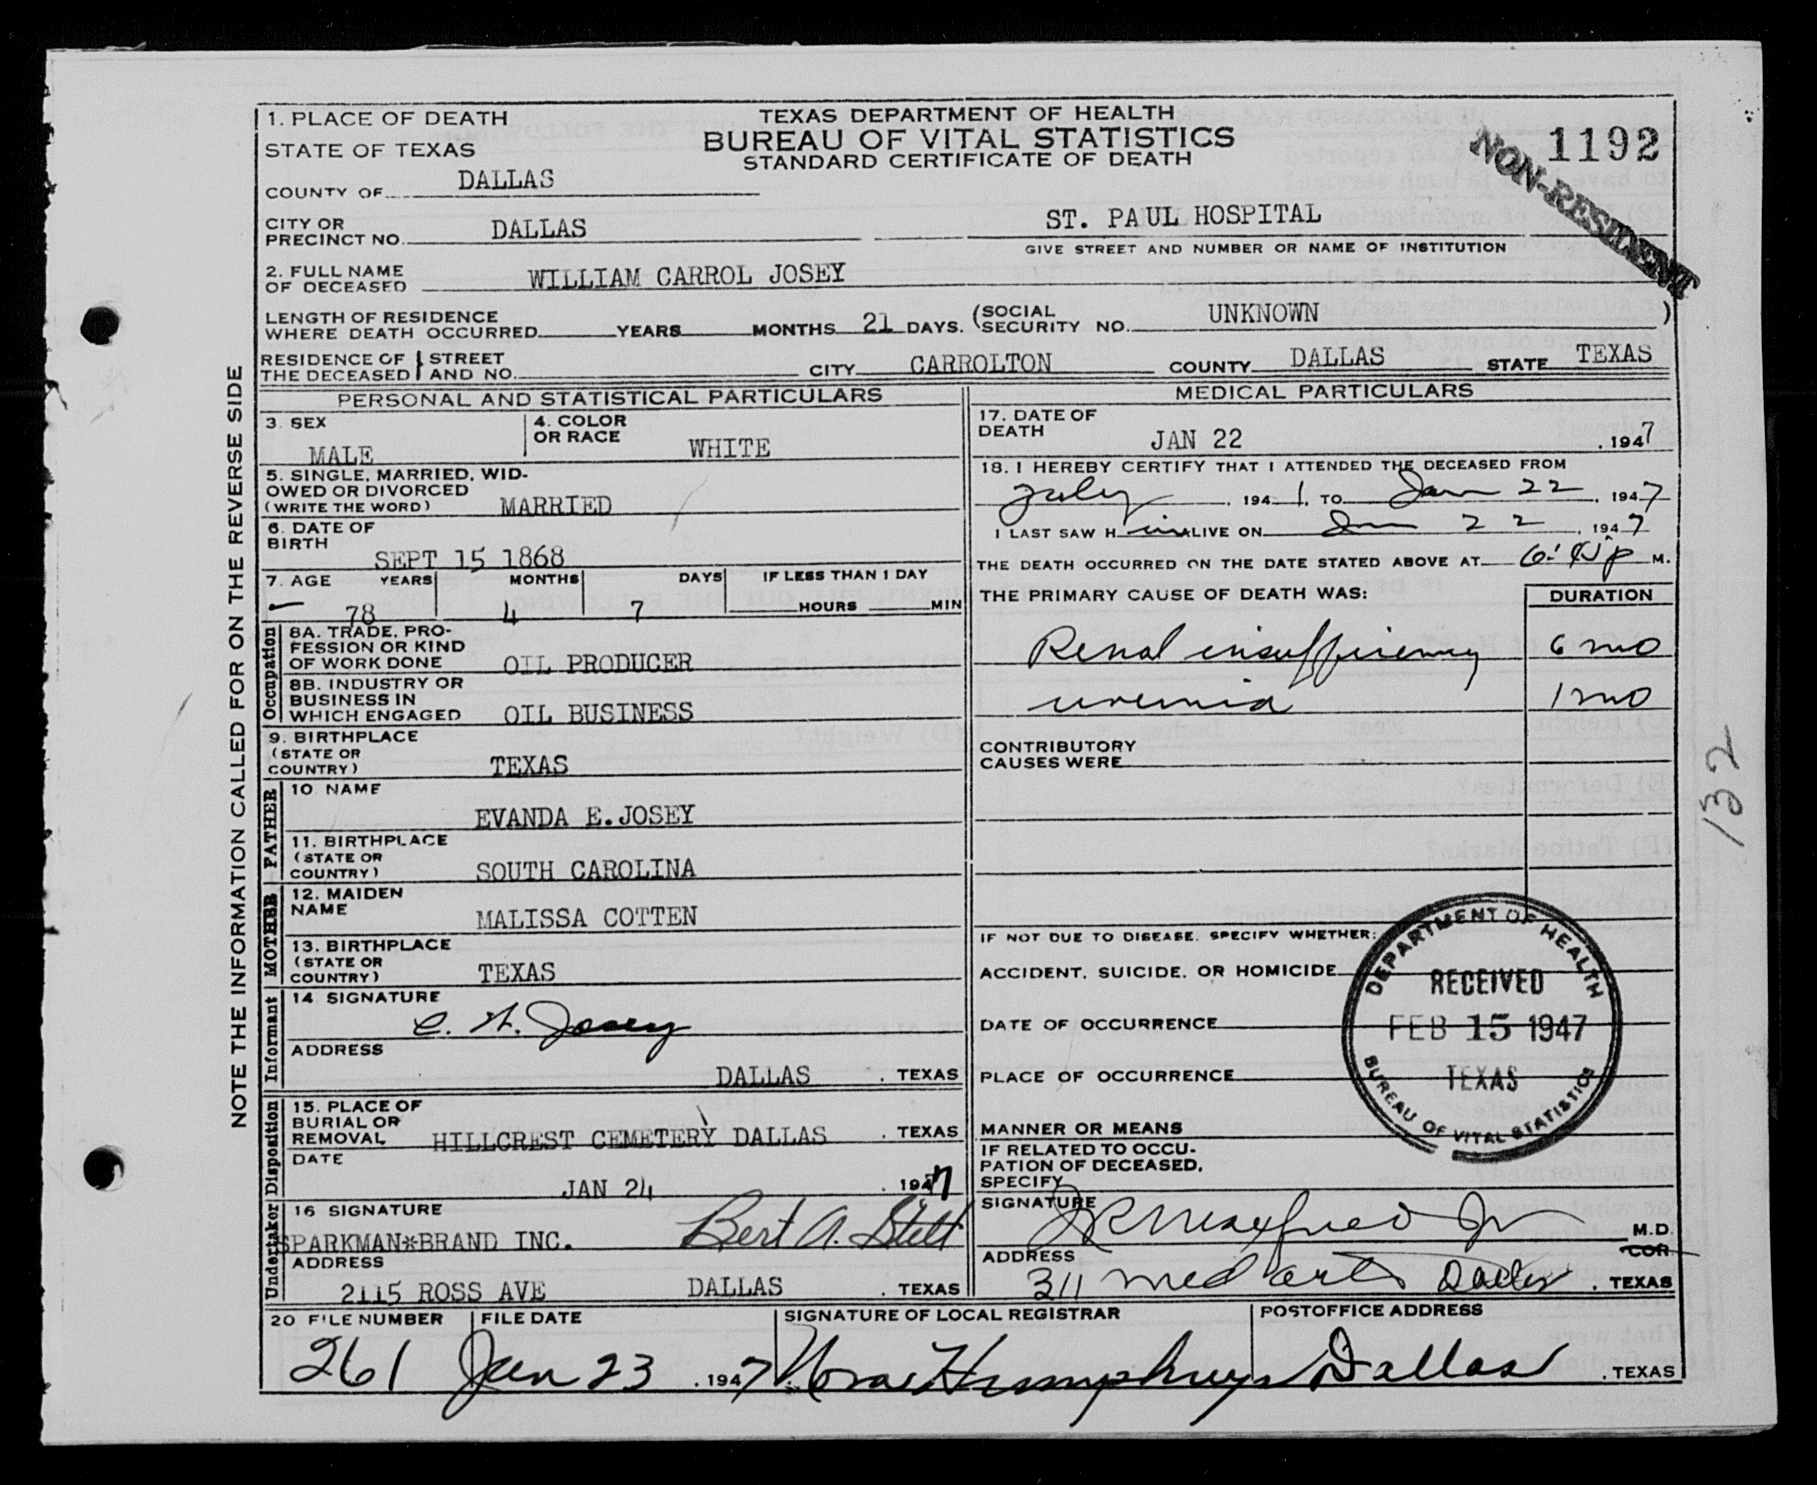 1. PLACE OF DEATH
STATE OF TEXAS
TEXAS DEPARTMENT OF HEALTH
BUREAU OF VITAL STATISTICS
STANDARD CERTIFICATE OF DEATH
1192
NON-RESIDENT
COUNTY OF DALLAS
CITY OR PRECINCT NO. DALLAS ST. PAUL HOSPITAL
GIVE STREET AND NUMBER OR NAME OF INSTITUTION
2. FULL NAME OF DECEASED WILLIAM CARROL JOSEY
LENGTH OF RESIDENCE WHERE DEATH OCCURRED YEARS MONTHS 21 DAYS. (SOCIAL SECURITY NO. UNKNOWN )
RESIDENCE OF THE DECEASED STREET AND NO. CITY CARROLTON COUNTY DALLAS STATE TEXAS
NOTE THE INFORMATION CALLED FOR ON THE REVERSE SIDE
PERSONAL AND STATISTICAL PARTICULARS
3. SEX MALE
4. COLOR OR RACE WHITE
5. SINGLE, MARRIED, WID-
OWED OR DIVORCED
(WRITE THE WORD) MARRIED
6. DATE OF BIRTH SEPT 15 1868
7. AGE YEARS MONTHS DAYS IF LESS THAN 1 DAY
78 4 7 HOURS MIN
Occupation
8A. TRADE, PRO-
FESSION OR KIND
OF WORK DONE OIL PRODUCER
8B. INDUSTRY OR
BUSINESS IN
WHICH ENGAGED OIL BUSINESS
9. BIRTHPLACE
(STATE OR
COUNTRY) TEXAS
FATHER
10 NAME EVANDA E. JOSEY
11. BIRTHPLACE
(STATE OR
COUNTRY) SOUTH CAROLINA
MOTHER
12. MAIDEN NAME MALISSA COTTEN
13. BIRTHPLACE
(STATE OR
COUNTRY) TEXAS
Informant
14 SIGNATURE Josey
ADDRESS DALLAS . TEXAS
Disposition
15. PLACE OF
BURIAL OR
REMOVAL HILLCREST CEMETERY DALLAS . TEXAS
DATE JAN 24 . 1947
Undertaker
16 SIGNATURE
SPARKMAN*BRAND INC. Bert A.
ADDRESS
2115 ROSS AVE DALLAS . TEXAS
MEDICAL PARTICULARS
17. DATE OF DEATH JAN 22 . 1947
18. I HEREBY CERTIFY THAT I ATTENDED THE DECEASED FROM
July . 1941, TO Jan 22 . 1947
I LAST SAW H im ALIVE ON Jan 22 . 1947
THE DEATH OCCURRED ON THE DATE STATED ABOVE AT 6: p M.
THE PRIMARY CAUSE OF DEATH WAS: DURATION
Renal insufficiency 6 mo
uremia 1 mo
CONTRIBUTORY
CAUSES WERE
IF NOT DUE TO DISEASE, SPECIFY WHETHER:
ACCIDENT, SUICIDE, OR HOMICIDE
DATE OF OCCURRENCE
PLACE OF OCCURRENCE
MANNER OR MEANS
IF RELATED TO OCCU-
PATION OF DECEASED,
SPECIFY
DEPARTMENT OF HEALTH
RECEIVED
FEB 15 1947
TEXAS
BUREAU OF VITAL STATISTICS
SIGNATURE JR Maxfield Jr M.D.
COR
ADDRESS
311 Med arts Dallas . TEXAS
132
20 FILE NUMBER FILE DATE SIGNATURE OF LOCAL REGISTRAR POSTOFFICE ADDRESS
261 Jan 23 . 1947 Nora Humphreys Dallas . TEXAS